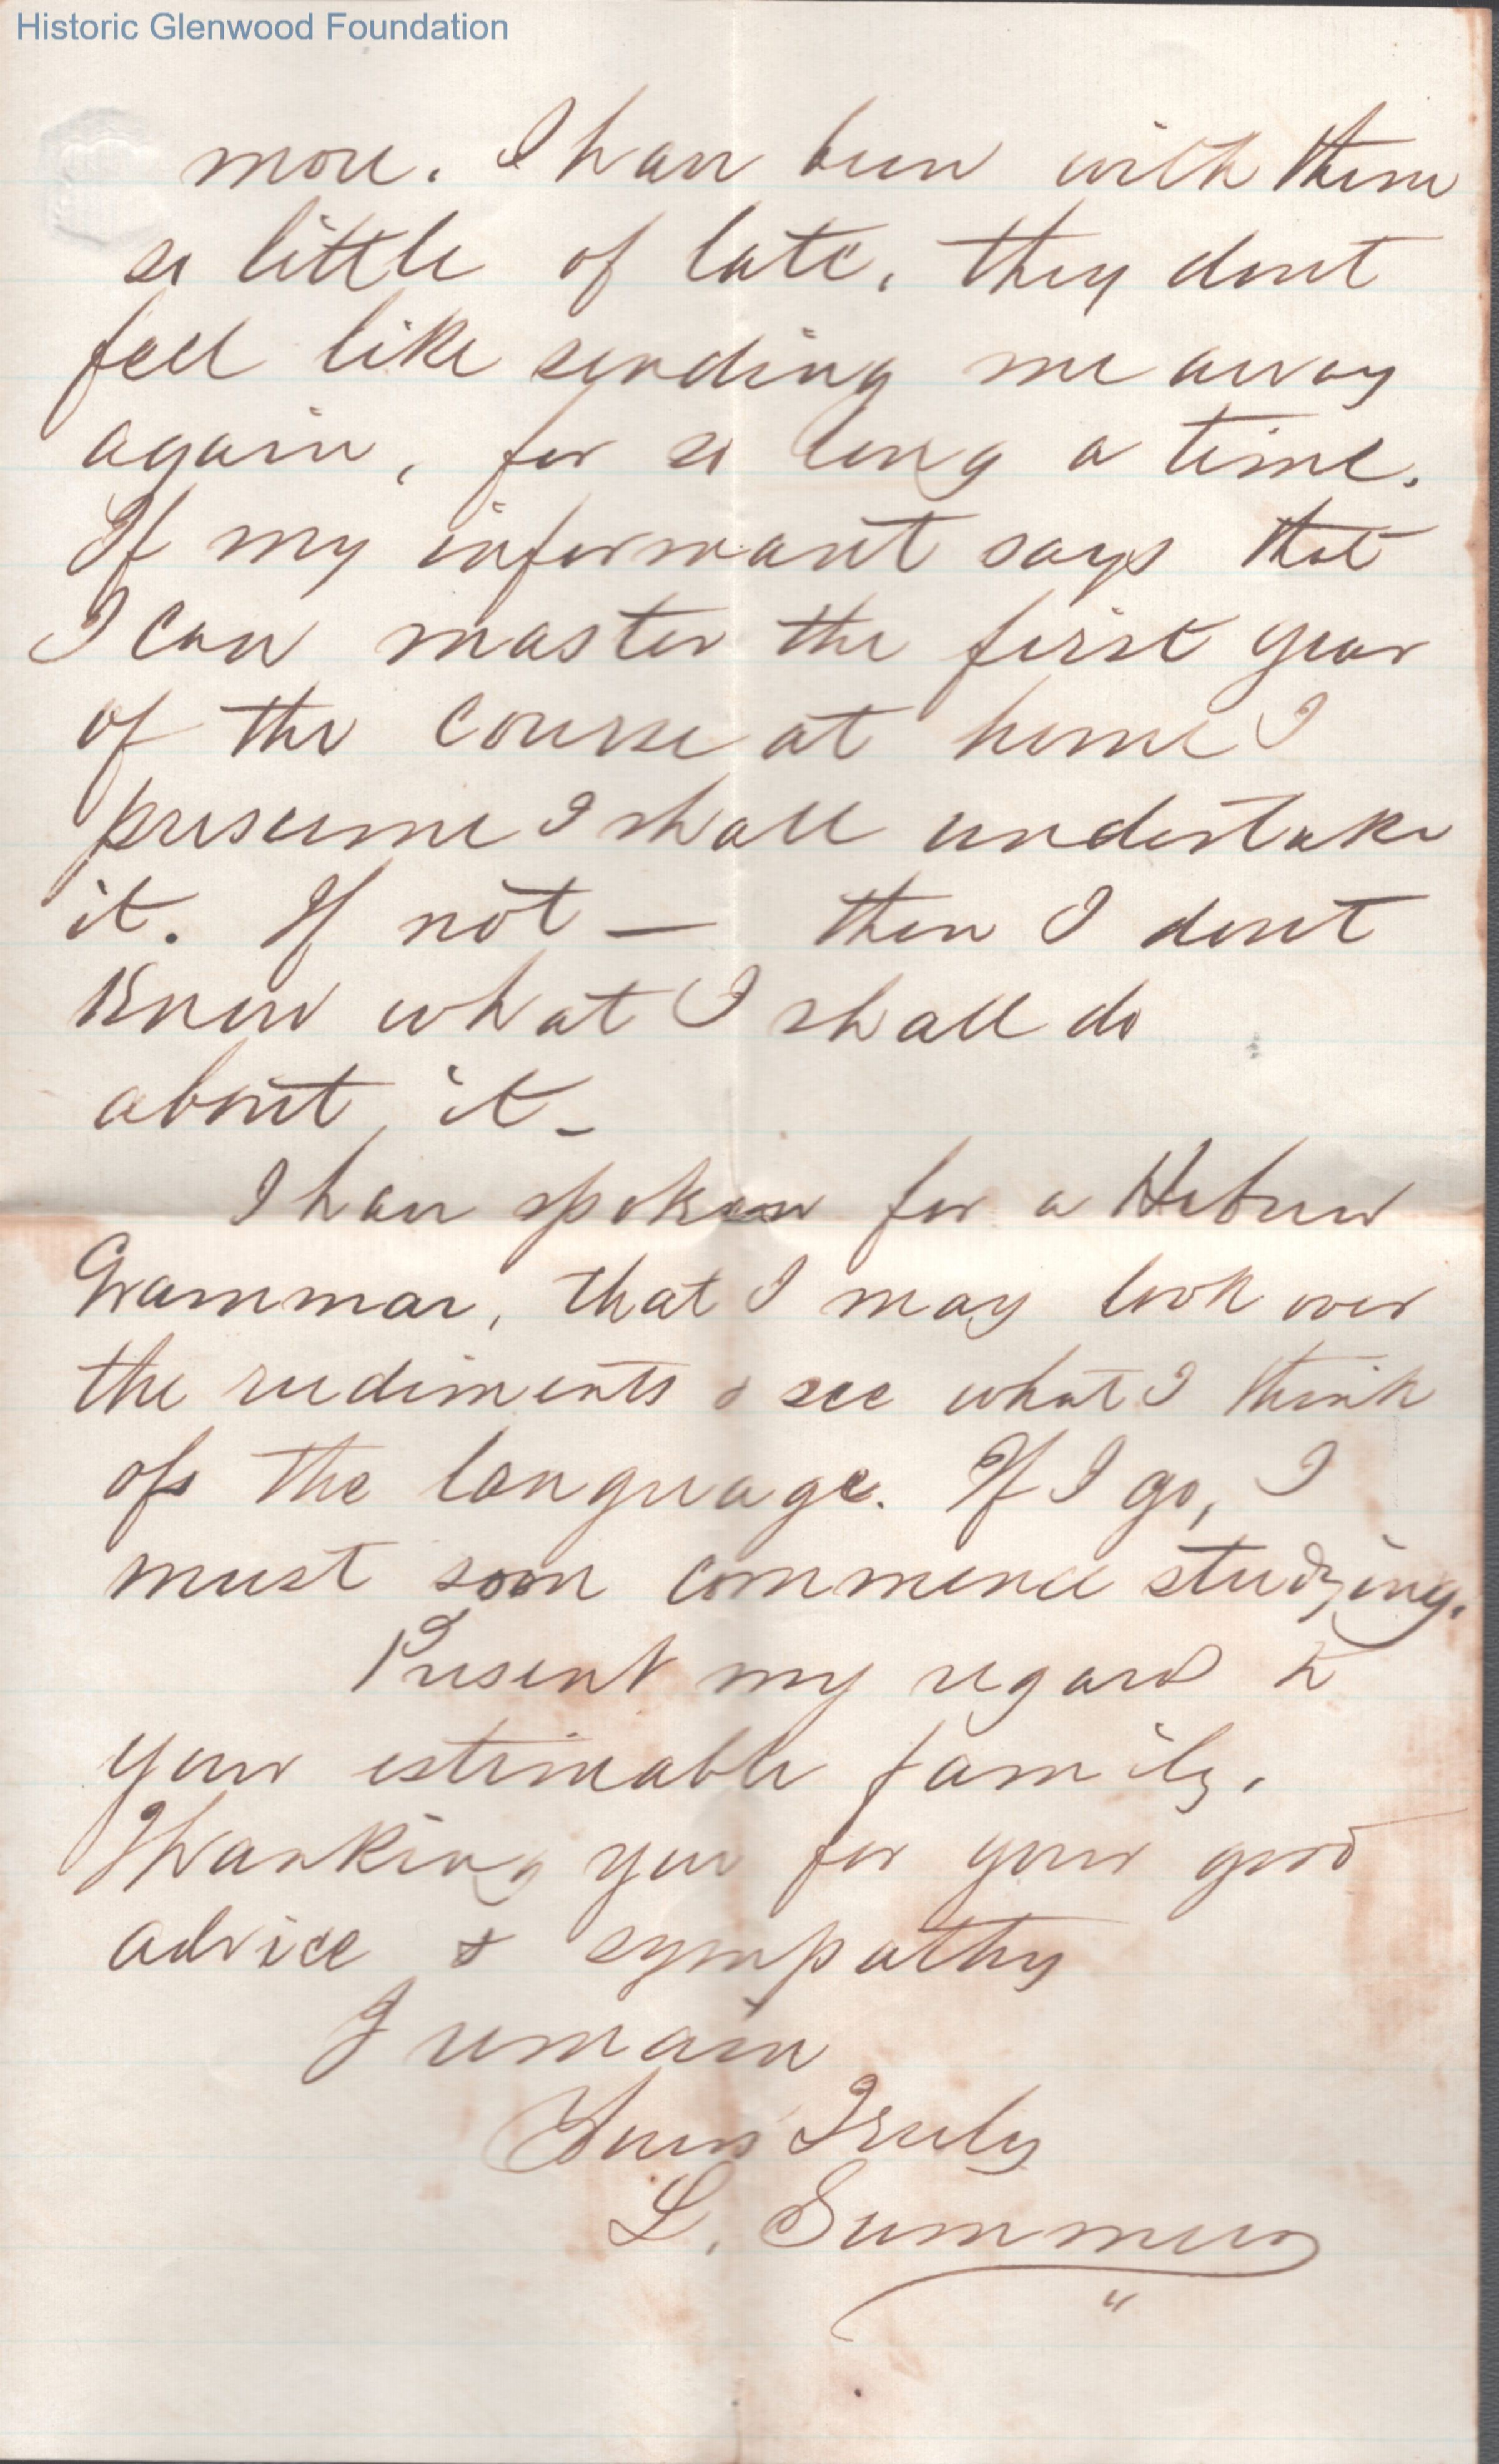 Historic Glenwood Foundation
more. I have been with them
so little of late, they dont
feel like sending me away
again, for so long a time.
If my informant says that
I can master the first year
of the course at home I
presume I shall undertake
it. If not — then I dont
know what I shall do
about it —
I have spoken for a Hebrew
Grammar, that I may look over
the rudiments & see what I think
of the language. If I go, I
must soon commence studying.
Present my regard to
your estimable family.
Thanking you for your good
advice & sympathy
I remain
Yours Truly
L. Summers